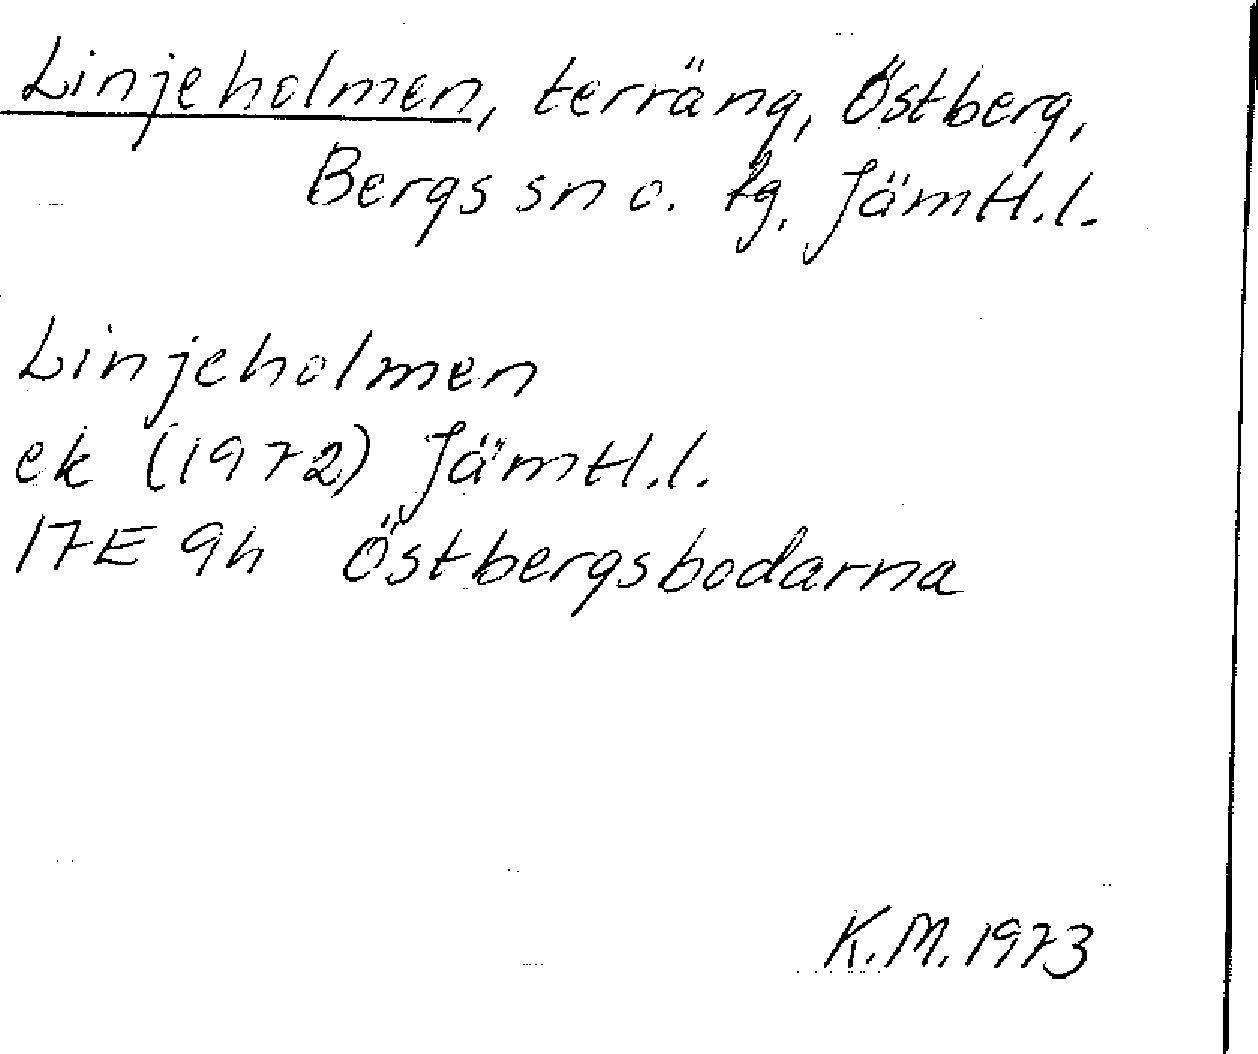 Linjeholmen, terräng, Östberg,
Bergs sn o. tg, Jämtl.l.
Linjeholmen
ek (1972) Jämtl.l.
17E 9h Östbergsbodarna
K.M. 1973